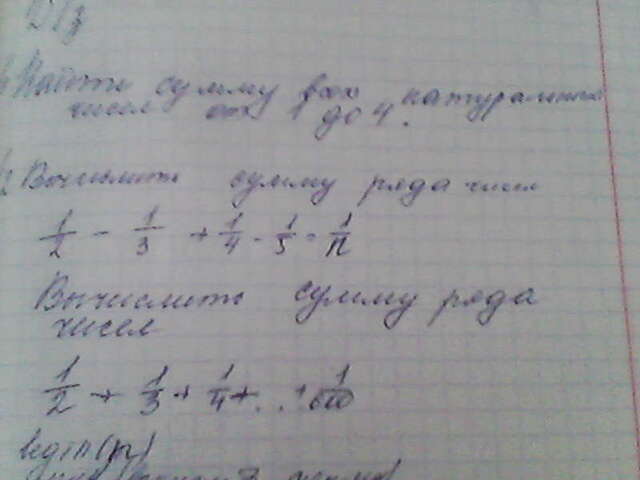 Д/з
1) Найти сумму всех натуральных
чисел от 1 до 4.
2 Вычислить сумму ряда чисел
1/2 - 1/3 + 1/4 - 1/5 - 1/n
Вычислить сумму ряда
чисел
1/2 + 1/3 + 1/4 + . . + 1/